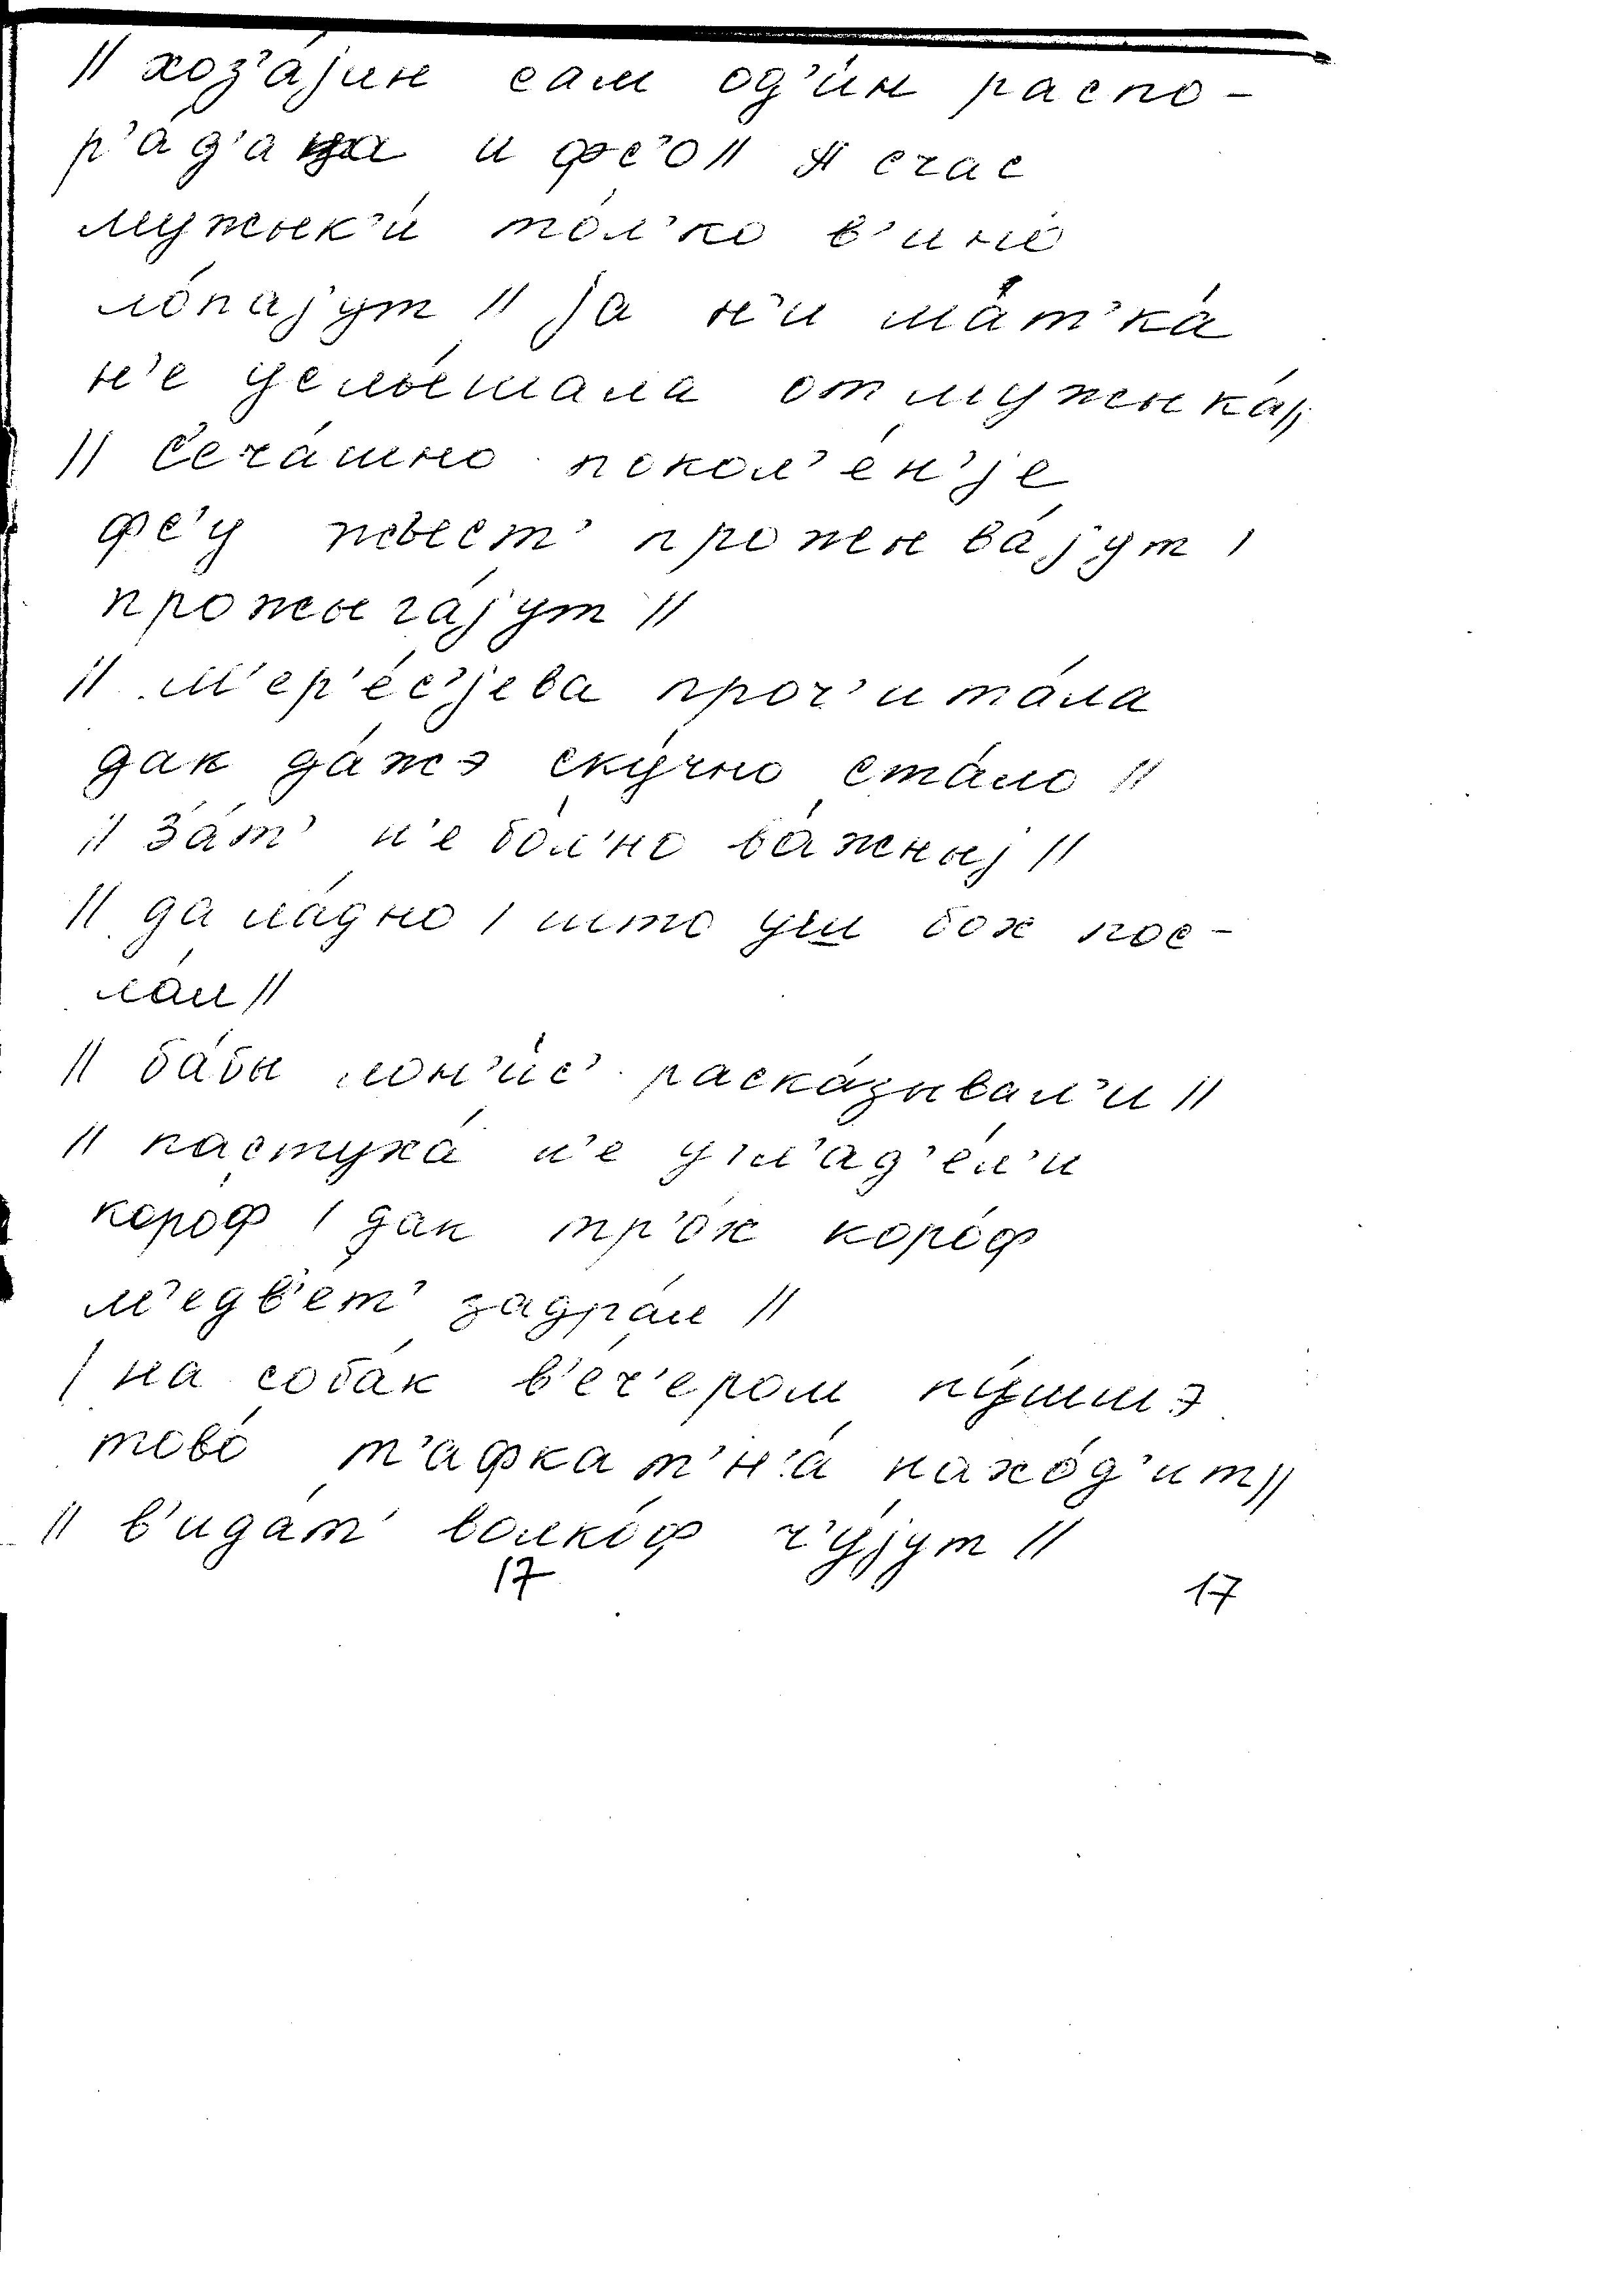 // хоз’а́јин сам од’и́н распо-
р’а́д’аца и фс’о // А счас
мужык’и́ то́л’ко в’ино́
ло́пајут // ја н’и ма́т’ка́
н’е услы́шала от мужыка́ //
// Сеча́шно покол’е́н’је
фс’у жы́ст’ прожыва́јут /
прожыга́јут //
// М’ер’е́с’јева проч’ита́ла
дак да́жэ ску́чно ста́ло //
// За́т’ н’е бо́л’но ва́жныј //
// да ла́дно / што уш бох пос-
ла́л //
// ба́бы лон’и́с’ раска́зывал’и //
// пастуха́ н’е угл’ад’е́л’и
коро́ф / дак тр’о́х коро́ф
м’едв’е́т’ задра́л //
/ на соба́к в’е́ч’ером пу́шшэ
тово́ т’афкат’н’а́ нахо́д’ит //
// в’ида́т’ волко́ф ч’у́јут //
17 17